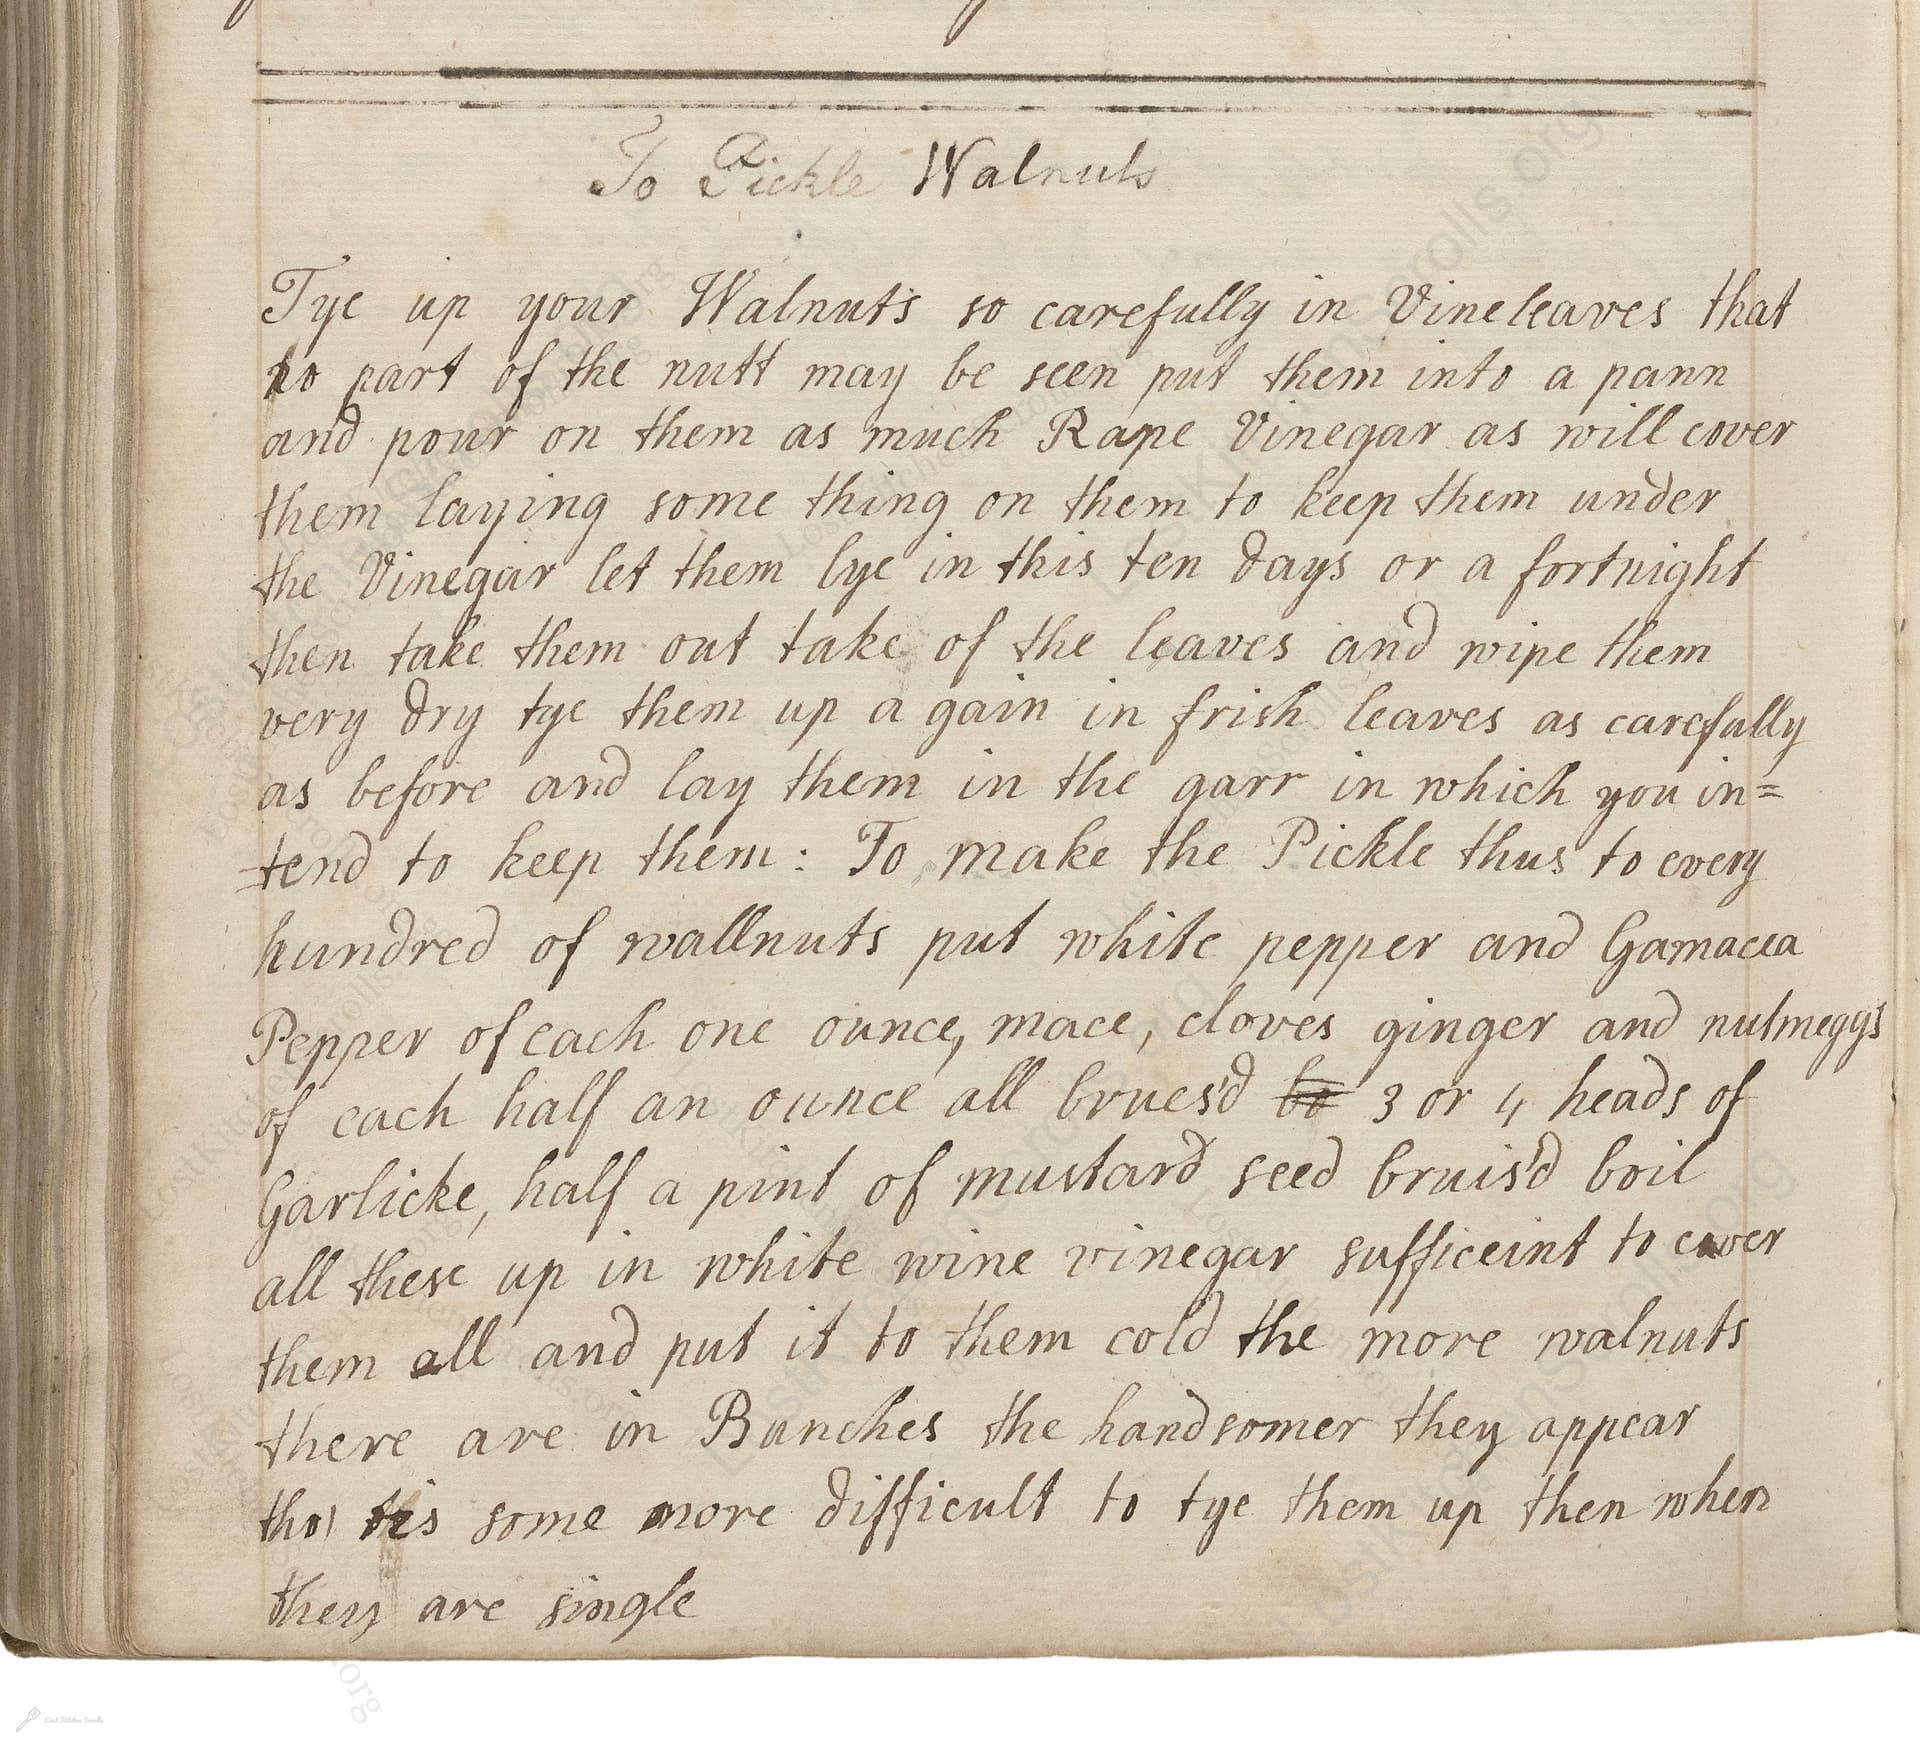 To Pickle Walnuts
Tye up your Walnuts so carefully in Vineleaves that
no part of the nutt may be seen put them into a pann
and pour on them as much Rape Vinegar as will cover
them laying some thing on them to keep them under
the Vinegar let them lye in this ten days or a fortnight
then take them out take of the leaves and wipe them
very dry tye them up a gain in frish leaves as carefully
as before and lay them in the garr in which you in=
=tend to keep them: To make the Pickle thus to every
hundred of wallnuts put white pepper and Gamacia
Pepper of each one ounce, mace, cloves ginger and nutmeggs
of each half an ounce all brues'd bo 3 or 4 heads of
Garlicke, half a pint of mustard seed bruis'd boil
all these up in white wine vinegar sufficeint to cover
them all and put it to them cold the more walnuts
there are in Bunches the handsomer they appear
tho' tis some more difficult to tye them up then when
they are single
Lost Kitchen Scrolls
LostKitchenScrolls.org